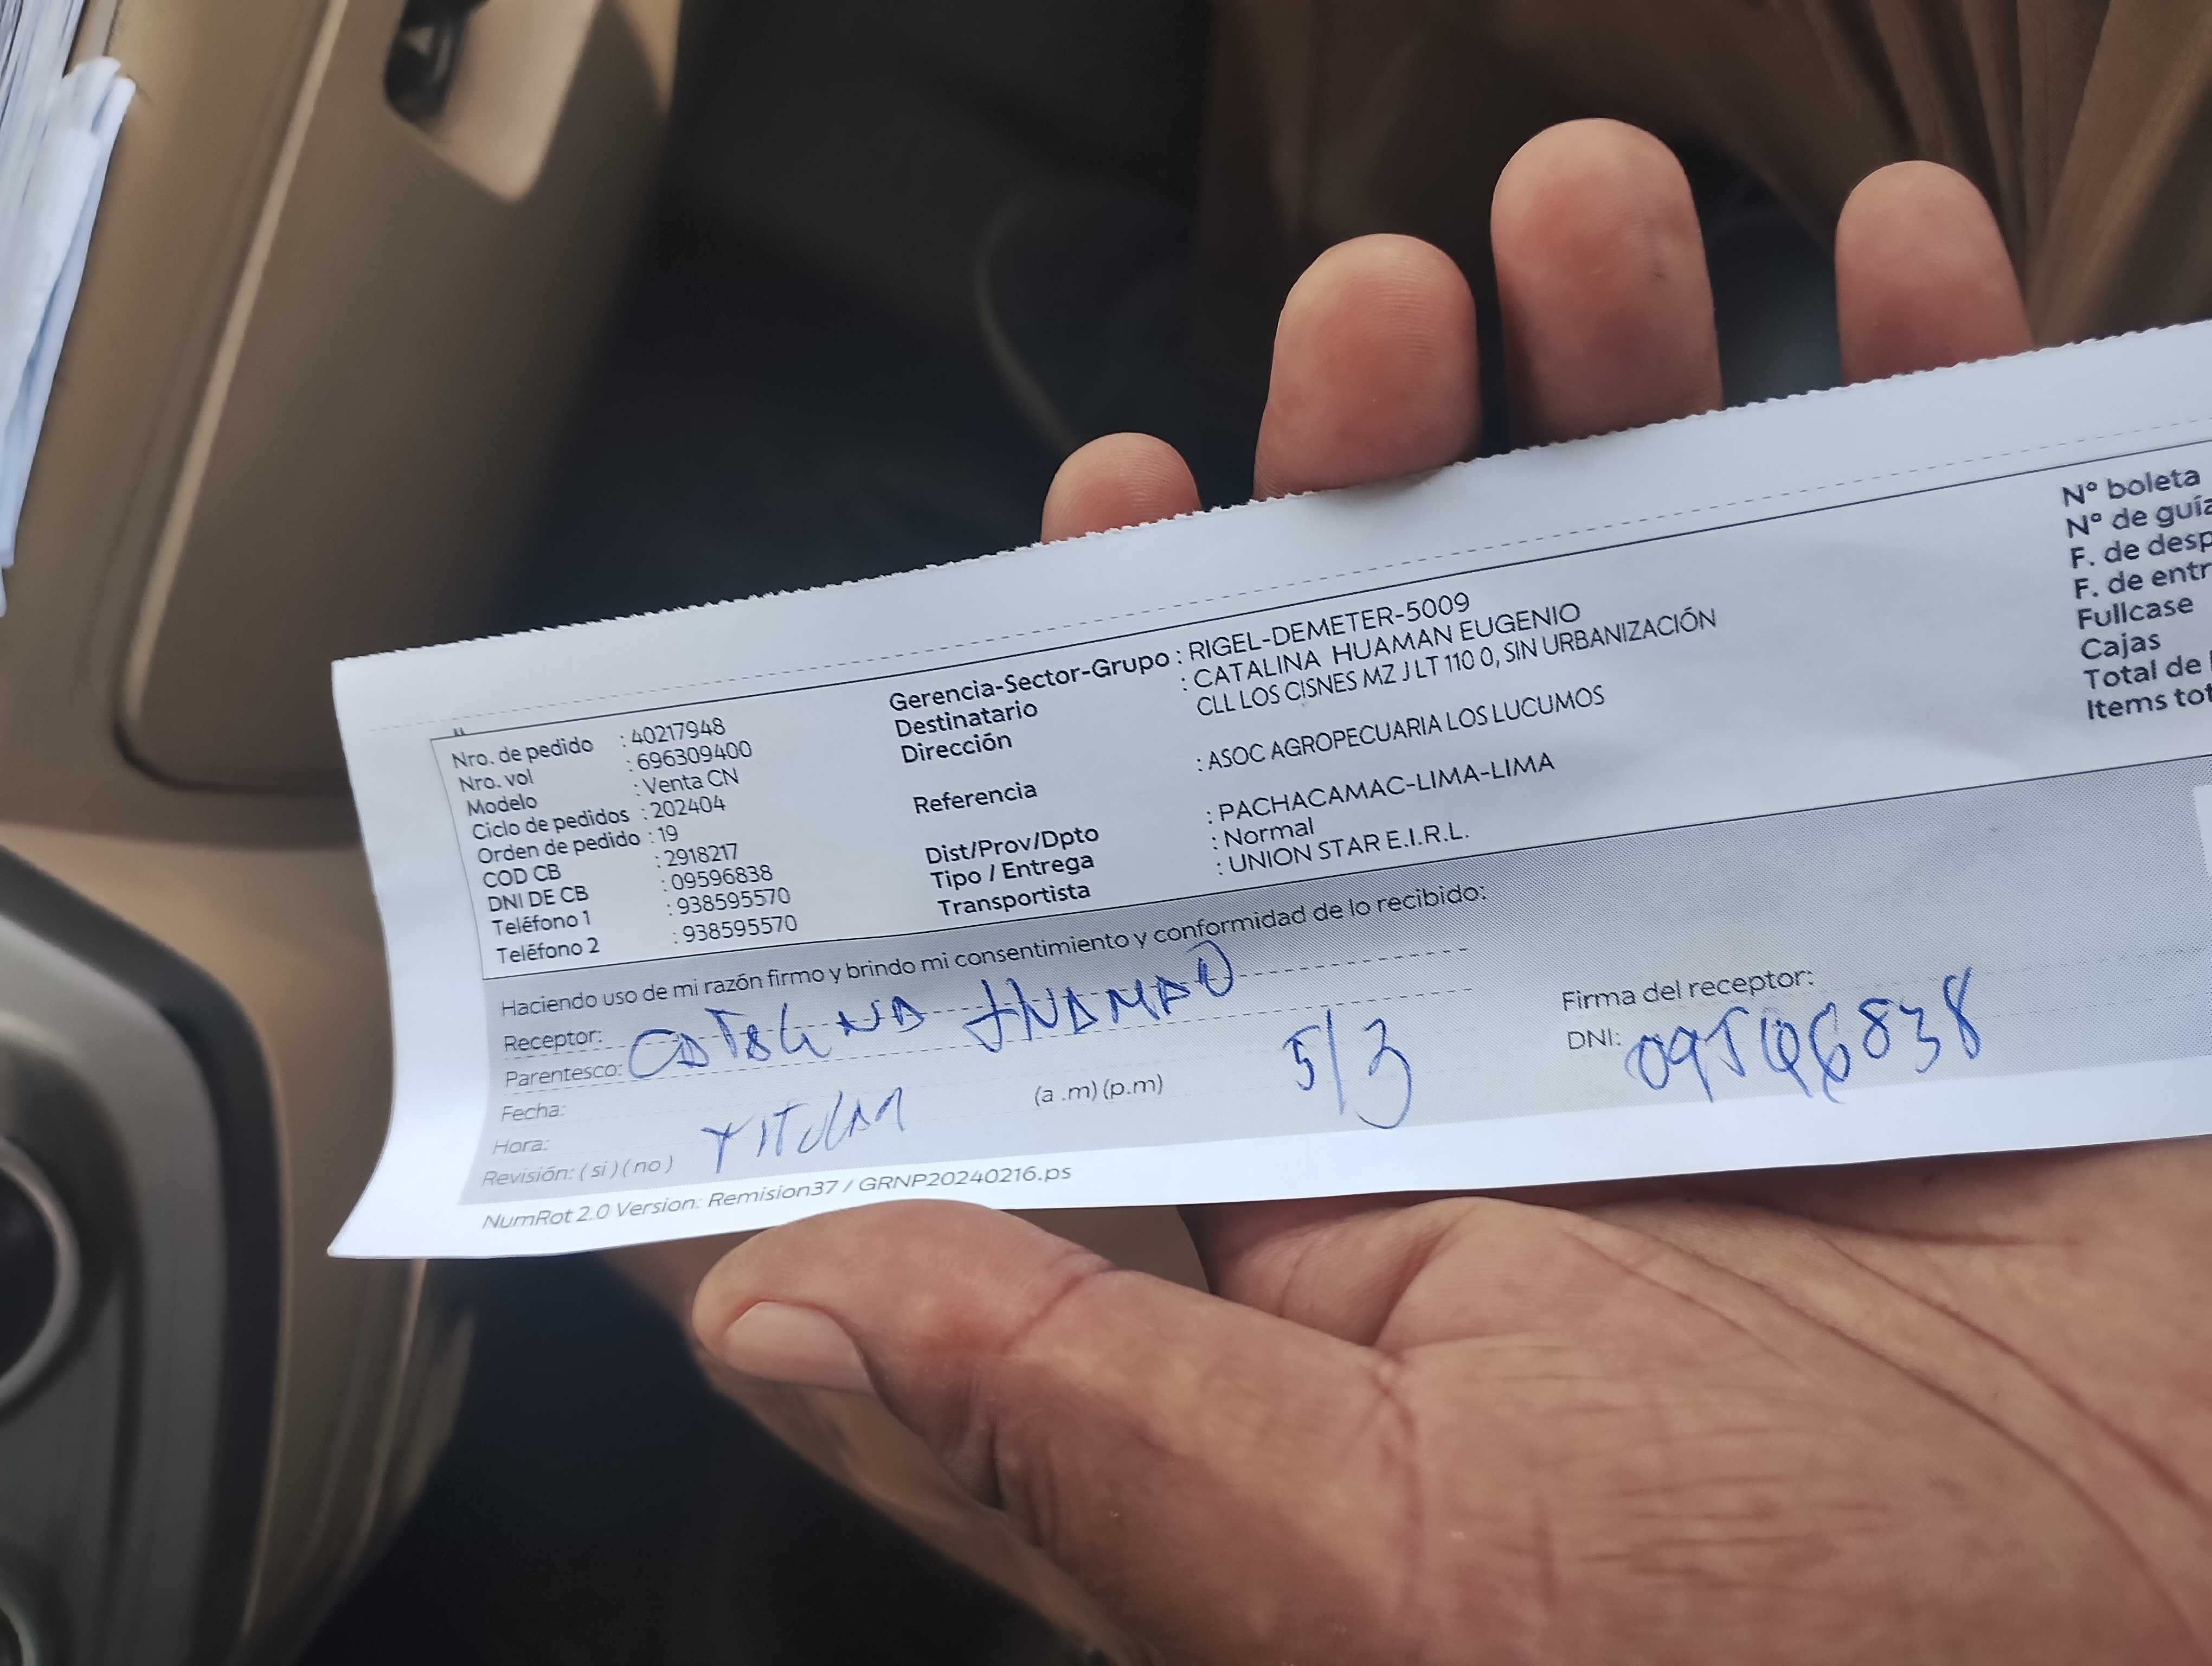 Nro. de pedido : 40217948
Nro. vol : 696309400
Modelo : Venta CN
Ciclo de pedidos : 202404
Orden de pedido : 19
COD CB : 2918217
DNI DE CB : 09596838
Teléfono 1 : 938595570
Teléfono 2 : 938595570
Gerencia-Sector-Grupo : RIGEL-DEMETER-5009
Destinatario : CATALINA HUAMAN EUGENIO
Dirección CLL LOS CISNES MZ J LT 110 0, SIN URBANIZACIÓN
Referencia : ASOC AGROPECUARIA LOS LUCUMOS
Dist/Prov/Dpto : PACHACAMAC-LIMA-LIMA
Tipo / Entrega : Normal
Transportista : UNION STAR E.I.R.L.
N° boleta
N° de guía
F. de desp
F. de entr
Fullcase
Cajas
Total de
Items tot
Haciendo uso de mi razón firmo y brindo mi consentimiento y conformidad de lo recibido:
Receptor:
Parentesco:
Fecha: 5/3
Hora: (a .m) (p.m)
Revisión: ( si ) ( no )
Firma del receptor:
DNI: 09596838
NumRot 2.0 Version: Remision37 / GRNP20240216.ps